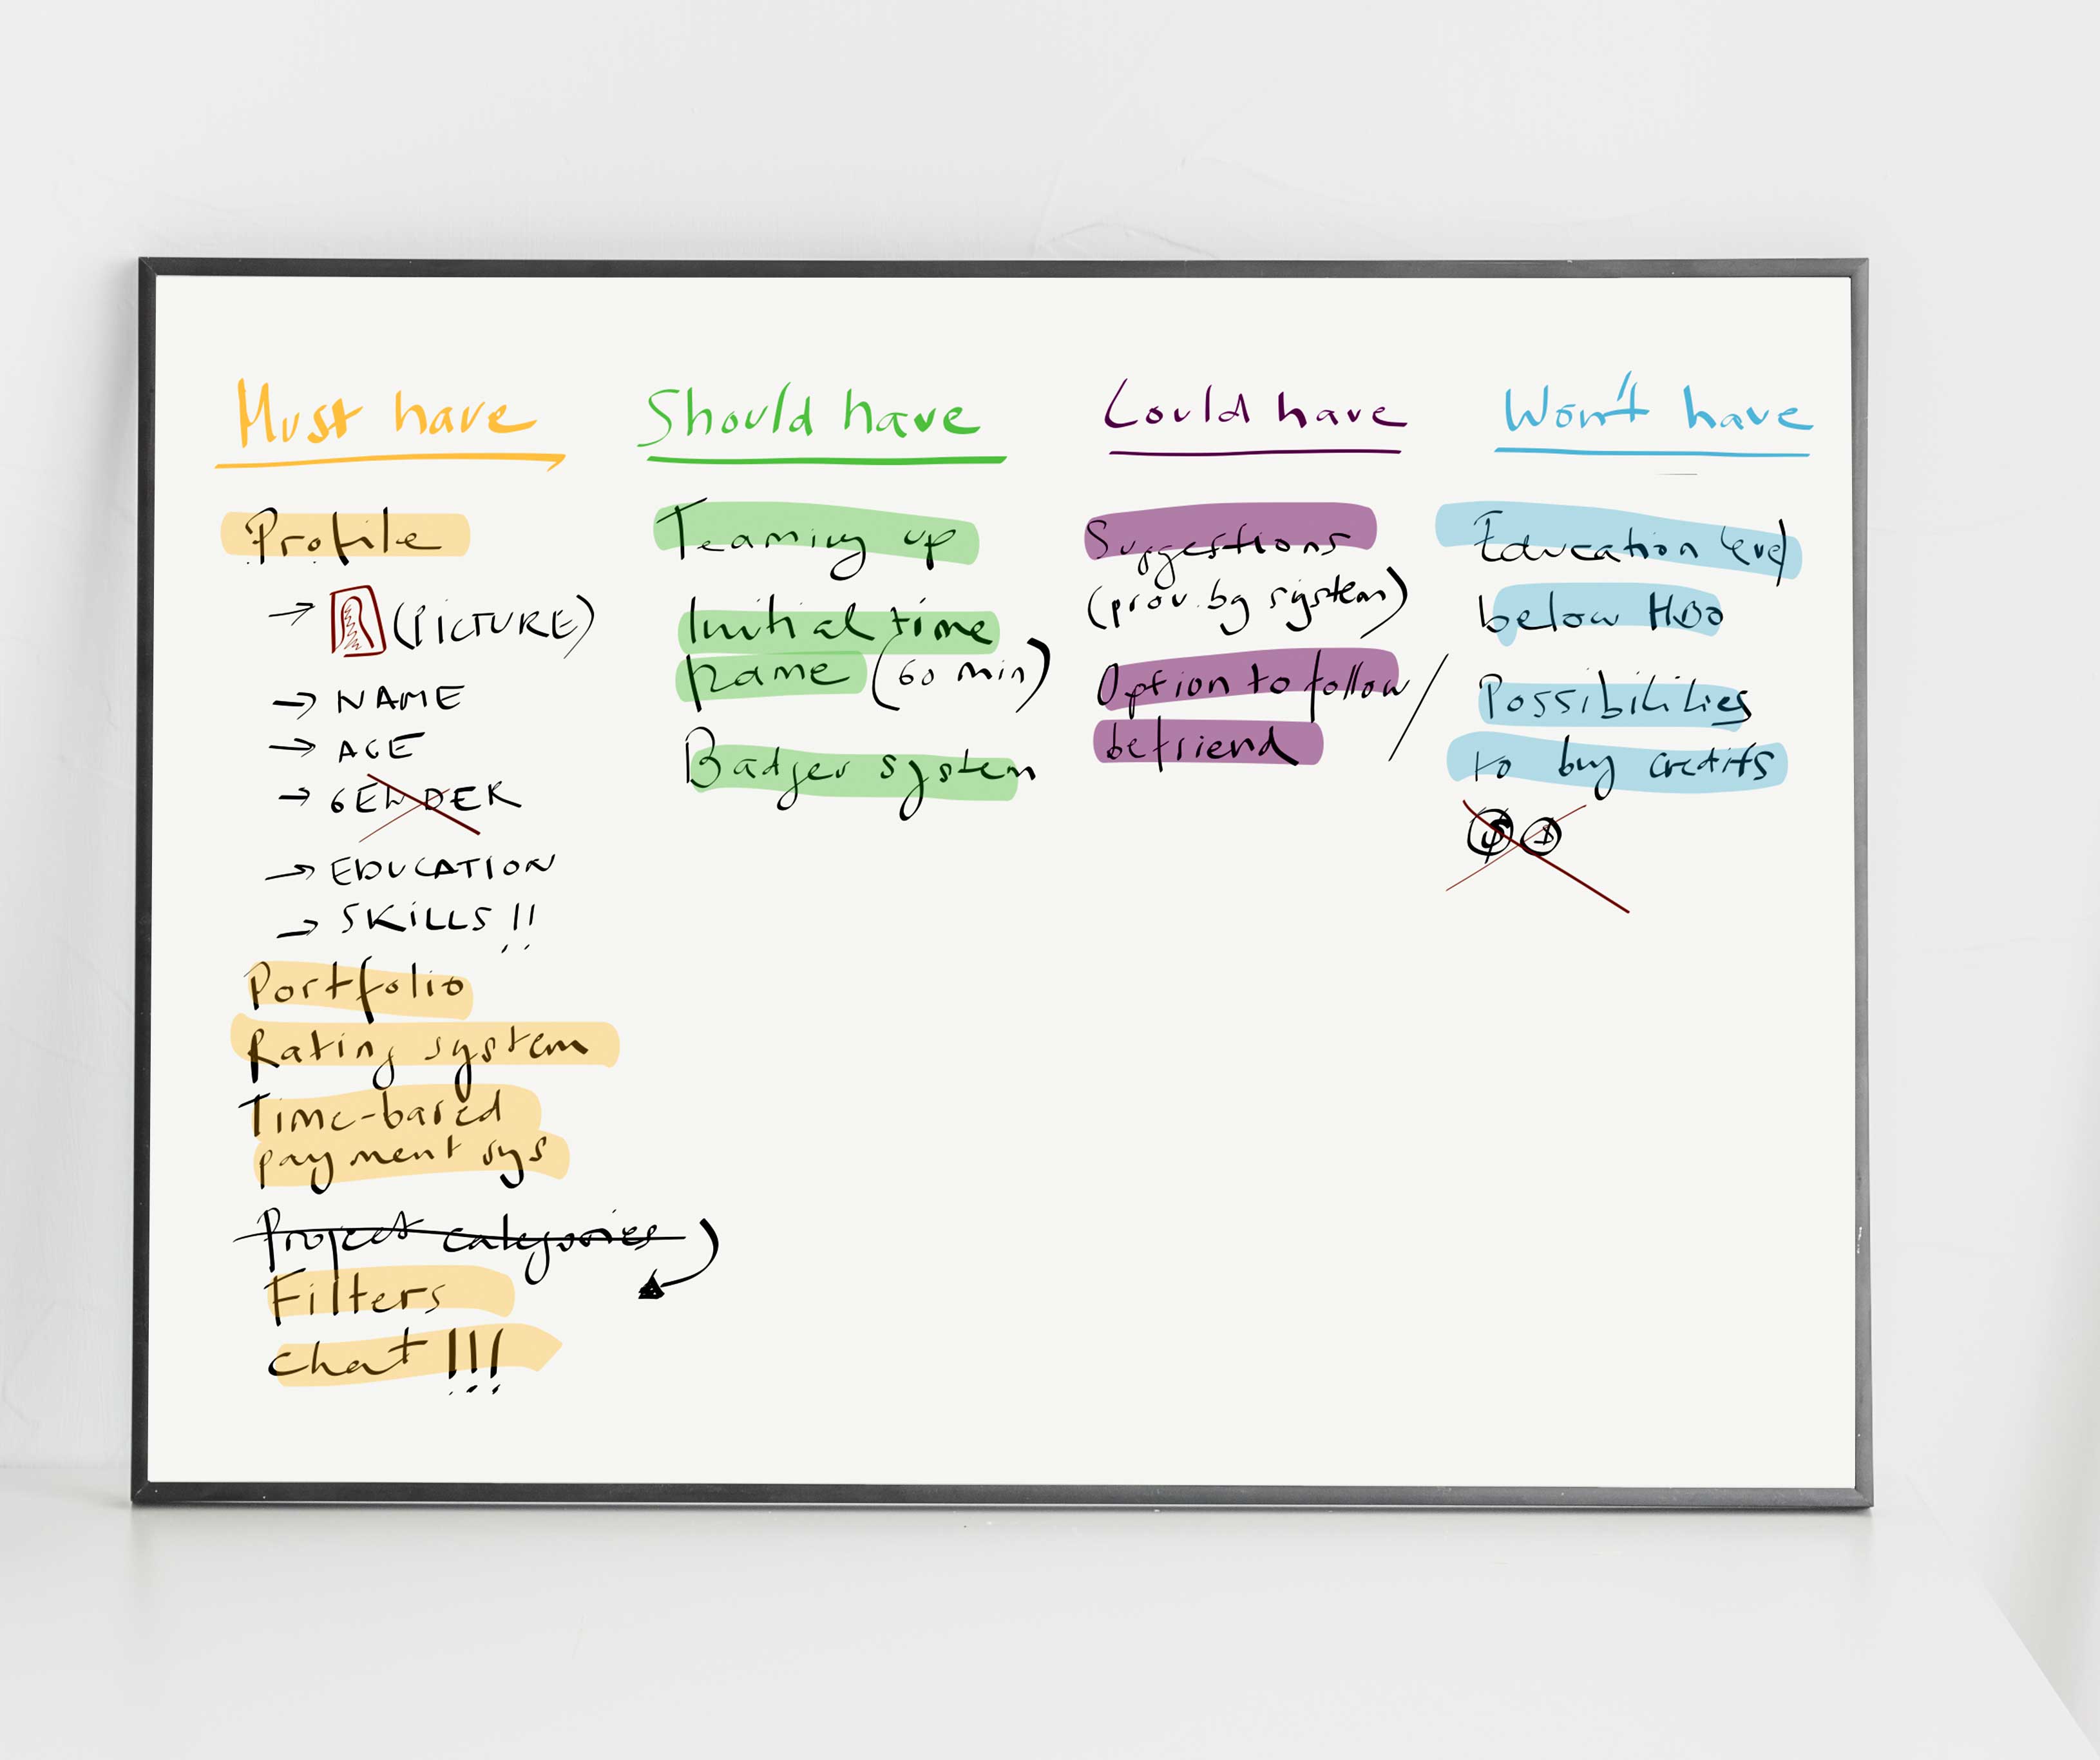 Must have
Profile
→ (PICTURE)
→ NAME
→ AGE
→ GENDER
→ EDUCATION
→ SKILLS!!
Portfolio
Rating system
Time-based
payment sys
Project categories
Filters
chat!!!
Should have
Teaming up
Initial time
frame (60 min)
Badges system
Could have
Suggestions
(prov. by system)
Option to follow/
befriend
Won't have
Education level
below HBO
Possibilities
to buy credits
$ $